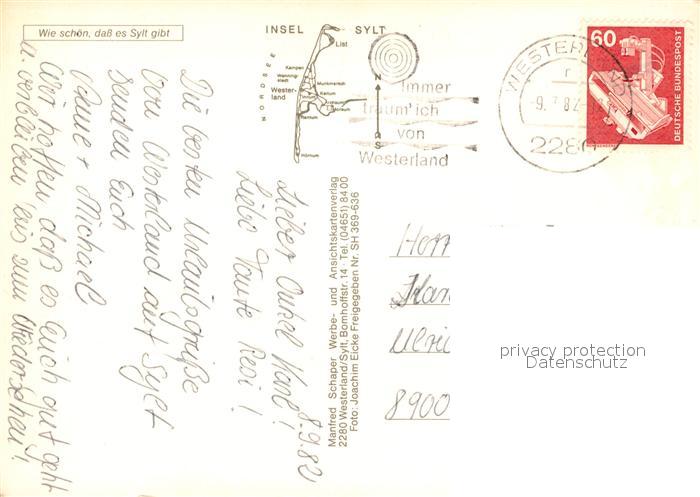 Wie schön, daß es Sylt gibt
INSEL SYLT
NORDSEE
List
Kampen
Wenning-
stedt
Wester-
land
Munkmarsch
Keitum
Rantum
Hörnum
N
S
Immer
träum' ich
von
Westerland
WESTERLAND
r
-9.
82
2280
60
DEUTSCHE BUNDESPOST
8.9.82
Lieber Onkel Karl!
Liebe Tante Resi!
Die besten Urlaubsgrüße
von Westerland auf Sylt
senden Euch
+ Michael
Wir hoffen daß es Euch gut geht
u. verbleiben bis zum Wiedersehen!
Manfred Schaper Werbe- und Ansichtskartenverlag
2280 Westerland/Sylt, Bomhoffstr. 14 · Tel. (04651) 84 00
Foto: Joachim Eicke Freigegeben Nr. SH 369-636
Herr
Kar
Ulric
8900
privacy protection
Datenschutz